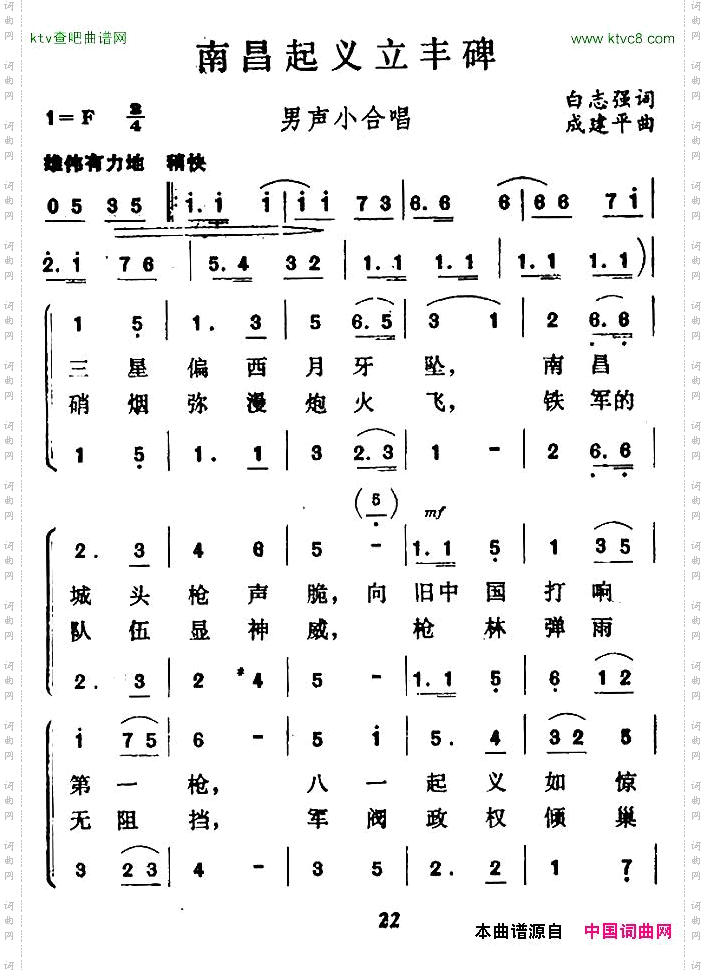 ktv查吧曲谱网
www.ktvc8.com
南昌起义立丰碑
1=F 2/4
男声小合唱
白志强词
成建平曲
雄伟有力地 稍快
0 5 3 5 i. i i i i 7 3 6. 6 6 6 6 7 i
2. i 7 6 5. 4 3 2 1. 1 1. 1 1. 1 1. 1 )
1 5 1. 3 5 6. 5 3 1 2 6. 6
三星偏西月牙坠，南昌
硝烟弥漫炮火飞，铁军的
1 5 1. 1 3 2. 3 1 - 2 6. 6
(5) mf
2. 3 4 6 5 - 1. 1 5 1 3 5
城头枪声脆，向旧中国打响
队伍显神威，枪林弹雨
2. 3 2 #4 5 - 1. 1 5 6 1 2
i 7 5 6 - 5 i 5. 4 3 2 5
第一枪，八一起义如惊
无阻挡，军阀政权倾巢
3 2 3 4 - 3 5 2. 2 1 7
22
本曲谱源自 中国词曲网